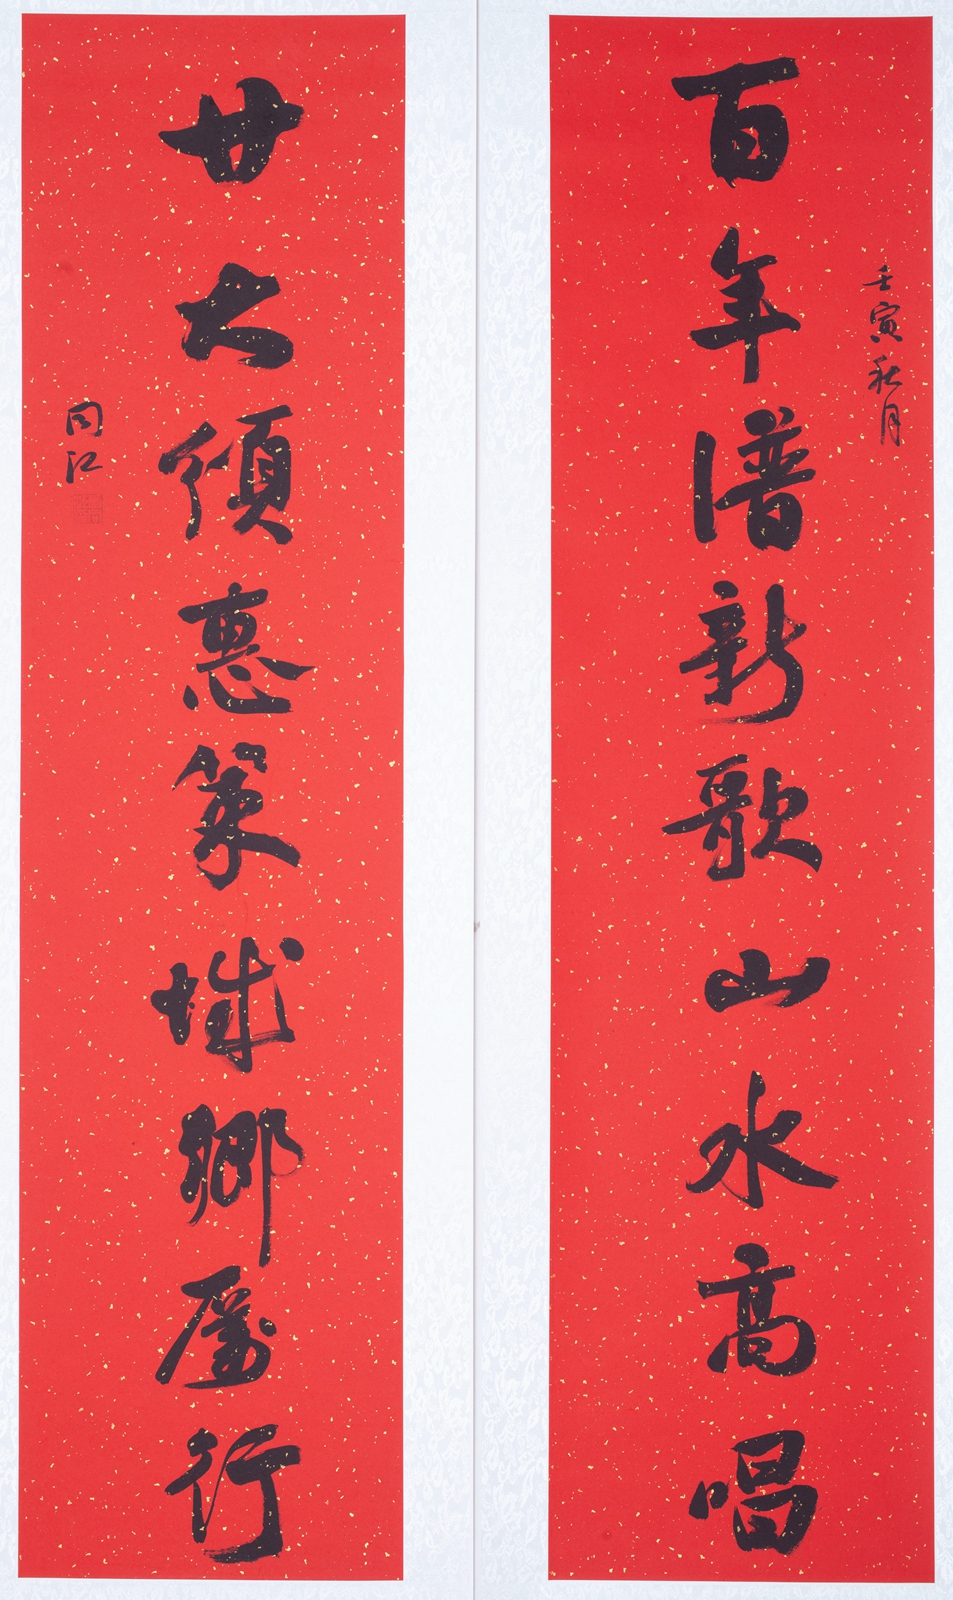 壬寅秋月
百年譜新歌山水高唱
廿大頒惠策城鄉厲行
同江